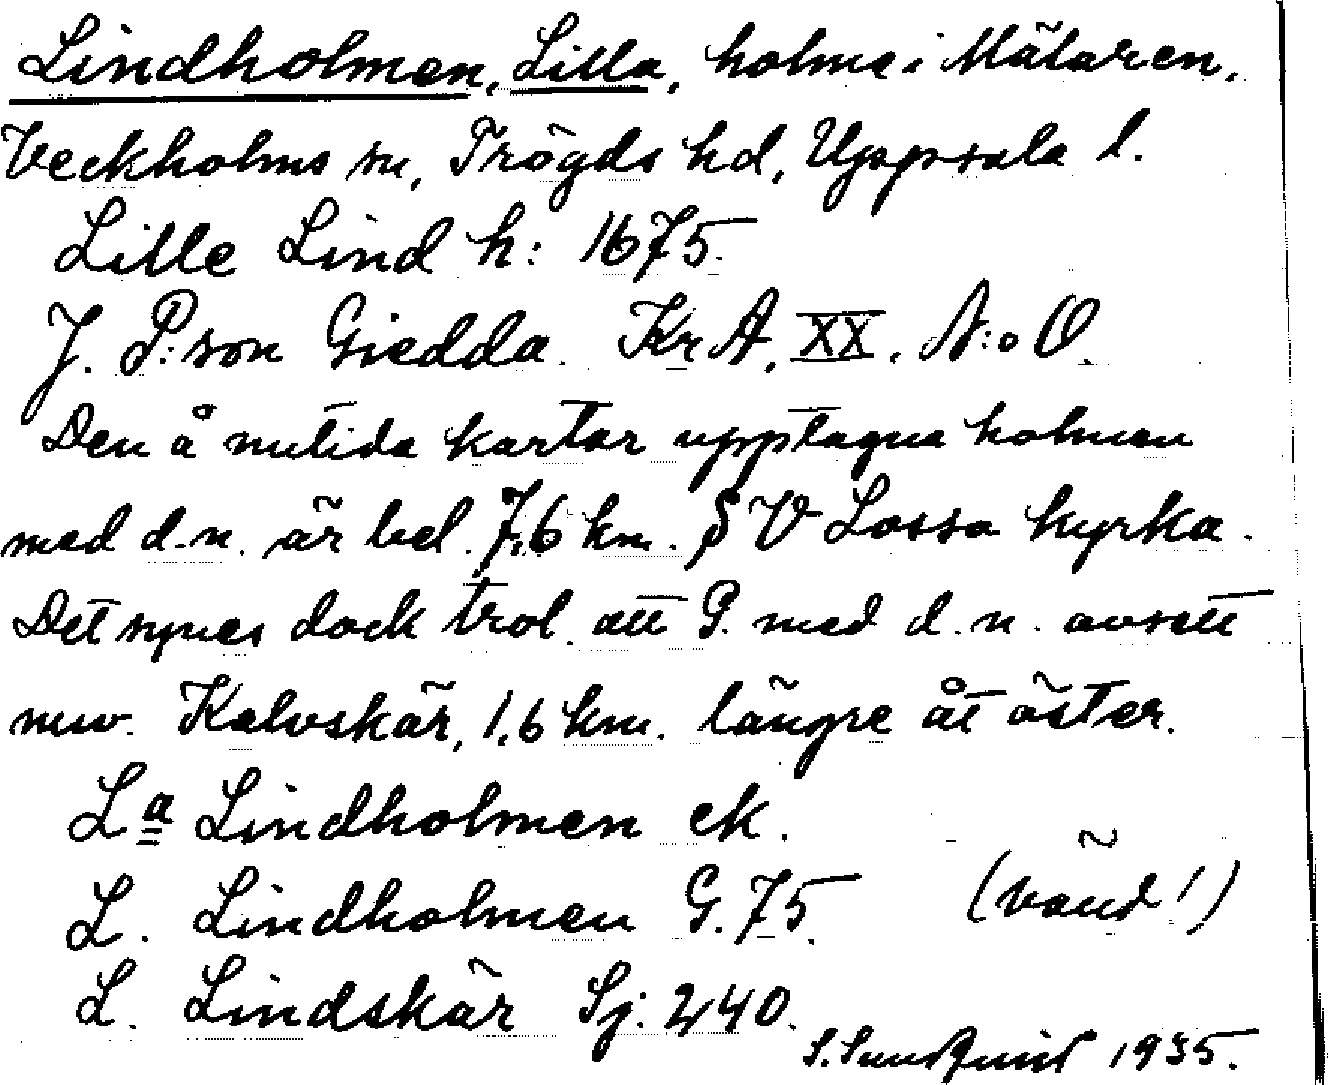 Lindholmen, Lilla, holme i Mälaren,
Veckholms sn, Trögds hd, Uppsala l.
Lille Lind h: 1675.
J. P:son Giedda. KrA, XX, N:o O.
Den å nutida kartor upptagna holmen
med d.n. är bel. 7,6 km. SV Lossa kyrka.
Det synes dock trol. att G. med d.n. avsett
nuv. Kalvskär, 1,6 km. längre åt öster.
La Lindholmen ek.
L. Lindholmen G. 75. (vänd!)
L. Lindskär Sj: 240.
S. Sundquist 1935.